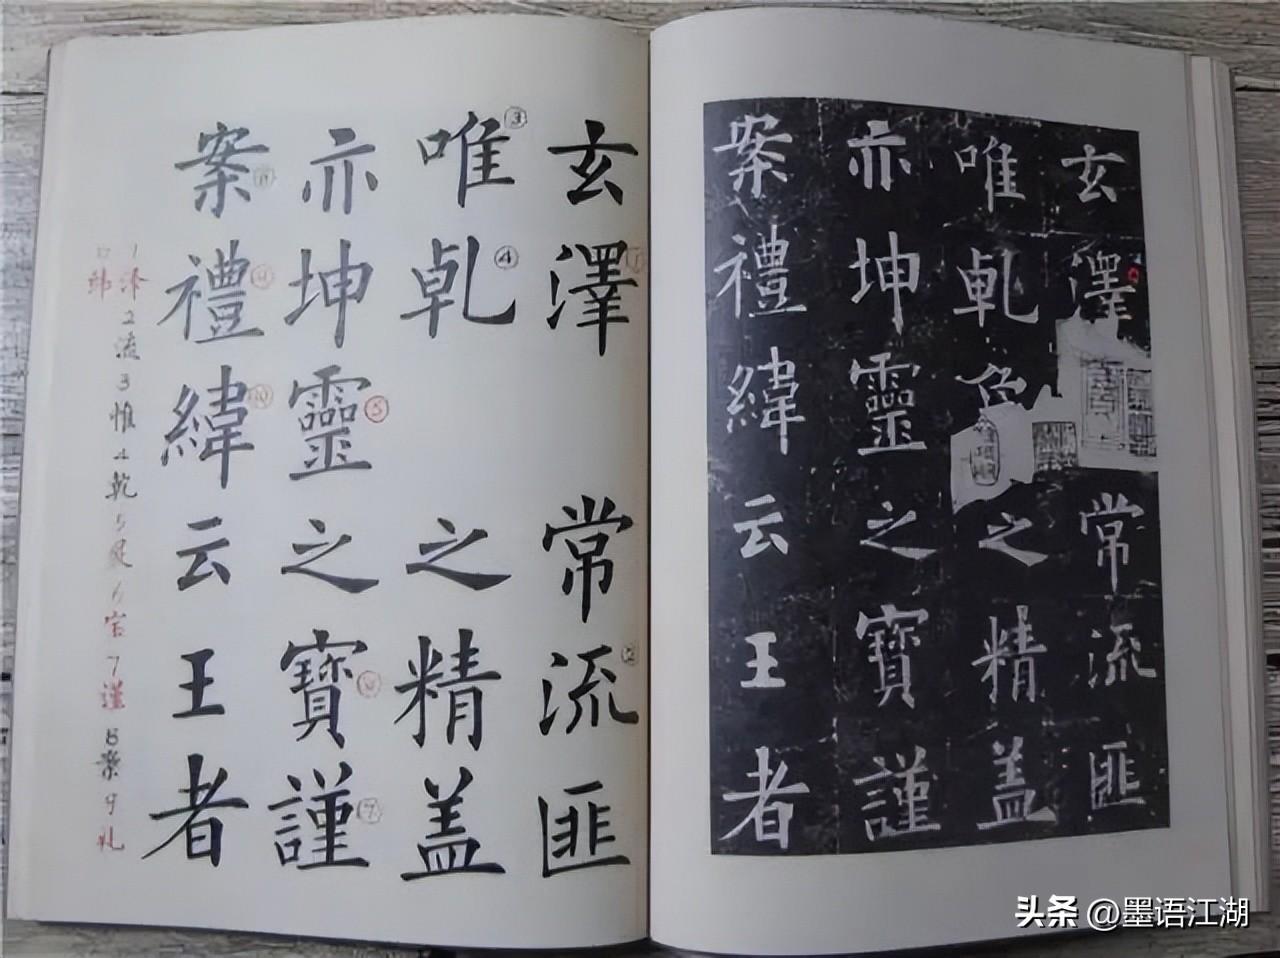 玄澤常流匪
唯乹之精盖
亦坤靈之寶謹
案禮緯云王者
1泽2流3惟4乾5灵6宝7谨8案9礼
10纬
玄澤常流匪
唯乹之精盖
亦坤靈之寶謹
案禮緯云王者
头条 @墨语江湖